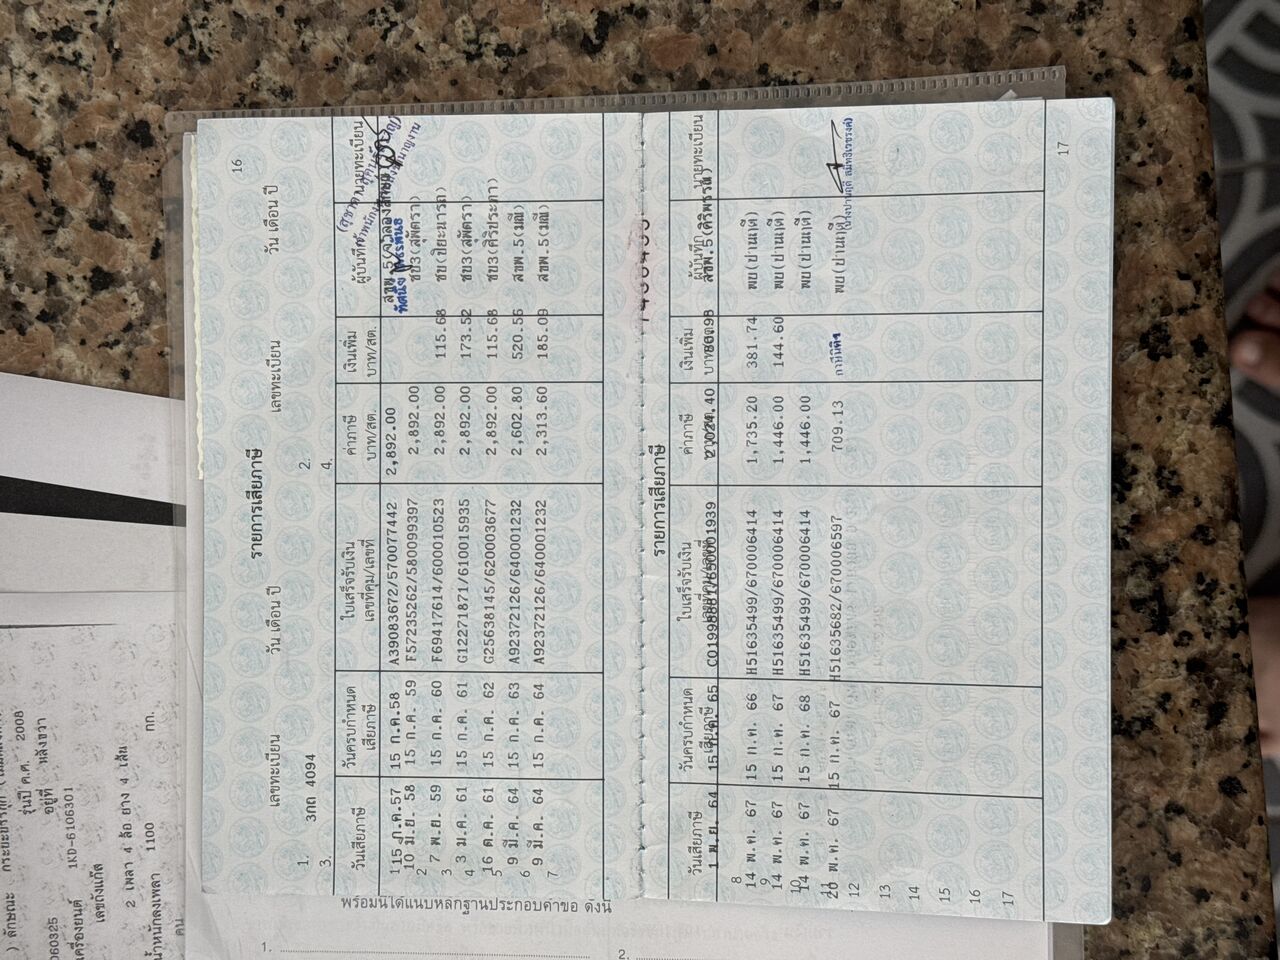 16
รายการเสียภาษี
เลขทะเบียน วัน เดือน ปี เลขทะเบียน วัน เดือน ปี
1. 3กถ 4094 2.
3. 4.
วันเสียภาษี วันครบกำหนดเสียภาษี ใบเสร็จรับเงิน เลขที่คุม/เลขที่ ค่าภาษี บาท/สต. เงินเพิ่ม บาท/สต. ผู้บันทึก นายทะเบียน
1 15 ก.ค.57 15 ก.ค.58 A39083672/570077442 2,892.00 สขพ.5
10 มิ.ย. 58 15 ก.ค. 59 F57235262/580099397 2,892.00 ชย3(สุพัตรา)
2 7 พ.ย. 59 15 ก.ค. 60 F69417614/600010523 2,892.00 115.68 ชย(ปิยะมารถ)
4 3 ม.ค. 61 15 ก.ค. 61 G12271871/610015935 2,892.00 173.52 ชย3(สุพัตรา)
5 16 ต.ค. 61 15 ก.ค. 62 G25638145/620003677 2,892.00 115.68 ชย3(ศิริประภา)
6 9 มี.ค. 64 15 ก.ค. 63 A92372126/640001232 2,602.80 520.56 สขพ.5(มณี)
7 9 มี.ค. 64 15 ก.ค. 64 A92372126/640001232 2,313.60 185.09 สขพ.5(มณี)
17
รายการเสียภาษี
วันเสียภาษี วันครบกำหนดเสียภาษี ใบเสร็จรับเงิน เลขที่คุม/เลขที่ ค่าภาษี บาท/สต. เงินเพิ่ม บาท/สต. ผู้บันทึก นายทะเบียน
1 พ.ย. 64 15 ก.ค. 65 2,024.40 80.98 สขพ.5(ศิริพรรณ)
8 14 พ.ค. 67 15 ก.ค. 66 H51635499/670006414 1,735.20 381.74 พย(ปานฤดี)
9 14 พ.ค. 67 15 ก.ค. 67 H51635499/670006414 1,446.00 144.60 พย(ปานฤดี)
10 14 พ.ค. 67 15 ก.ค. 68 H51635499/670006414 1,446.00 พย(ปานฤดี)
11 20 พ.ค. 67 15 ก.ค. 67 H51635682/670006597 709.13 พย(ปานฤดี)
12
13
14
15
16
17
พร้อมนี้ได้แนบหลักฐานประกอบคำขอ ดังนี้
1. 2.
ลักษณะ กระบะบรรทุก
รุ่นปี ค.ศ. 2008
060325 อยู่ที่ หลังขวา
เครื่องยนต์ 1KD-6106301
เลขถังแก๊ส
2 เพลา 4 ล้อ ยาง 4 เส้น
น้ำหนักลงเพลา 1100 กก.
คน